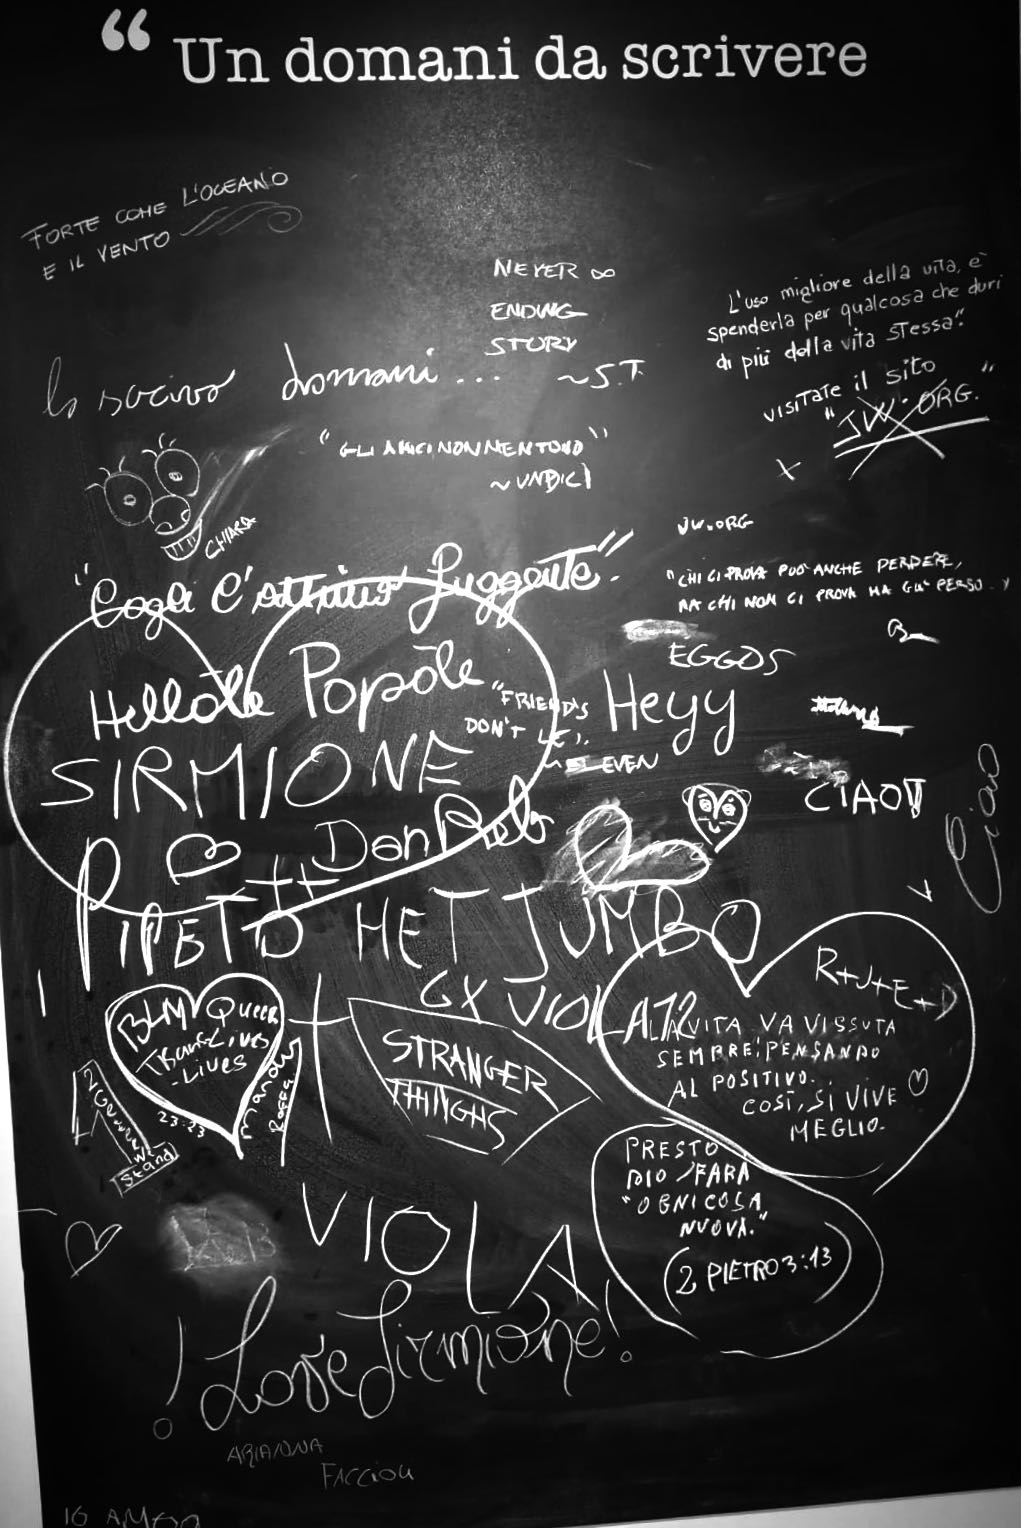 “ Un domani da scrivere
FORTE COME L'OCEANO
E IL VENTO
NEVER ∞
ENDING
STORY
~S.T.
L'uso migliore della vita, è
spenderla per qualcosa che duri
di più della vita stessa".
visitate il sito
"JW.ORG."
X
Io scrivo domani...
"GLI AMICI NON MENTONO"
~UNDICI
CHIARA
JW.ORG
"Cogli l'attimo fuggente".
"CHI CI PROVA PUO' ANCHE PERDERE,
MA CHI NON CI PROVA HA GIA' PERSO..."
EGGOS
Hellōle Popōle
"FRIENDS
DON'T LIE".
~ELEVEN
Heyy
SIRMIONE
CIAO!
Ciao
Dan
PIPETO HET JUMBO
GX VIOLA 72
R+J+E+D
BLM Queer
Trans Lives
-Lives
23:23
Stand
STRANGER
THINGHS
LA VITA VA VISSUTA
SEMPRE PENSANDO
AL POSITIVO.
COSÌ, SI VIVE
MEGLIO.
PRESTO
DIO FARÀ
"OGNI COSA
NUOVA."
(2 PIETRO 3:13)
VIOLA
! Love Sirmione!
ARIANNA
FACCIOLI
IO AMO